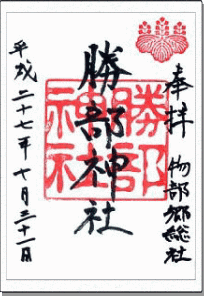 奉拝 物部郷総社
勝部神社
勝部神社
平成二十七年十月三十一日